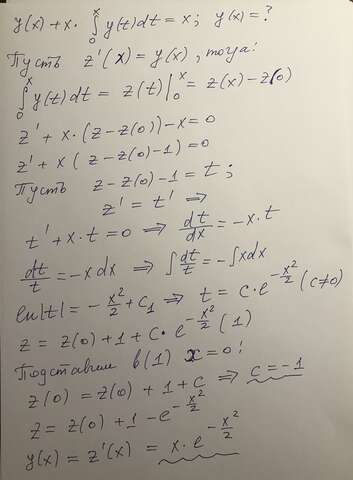 y(x) + x · ∫₀ˣ y(t)dt = x; y(x) = ?
Пусть z'(x) = y(x), тогда:
∫₀ˣ y(t)dt = z(t)|₀ˣ = z(x) - z(0)
z' + x · (z - z(0)) - x = 0
z' + x (z - z(0) - 1) = 0
Пусть z - z(0) - 1 = t;
z' = t' ⇒
t' + x · t = 0 ⇒ dt/dx = -x · t
dt/t = -x dx ⇒ ∫ dt/t = -∫ x dx
ln|t| = -x²/2 + C₁ ⇒ t = C · e^(-x²/2) (C≠0)
z = z(0) + 1 + C · e^(-x²/2) (1)
Подставим в (1) x = 0:
z(0) = z(0) + 1 + C ⇒ C = -1
z = z(0) + 1 - e^(-x²/2)
y(x) = z'(x) = x · e^(-x²/2)